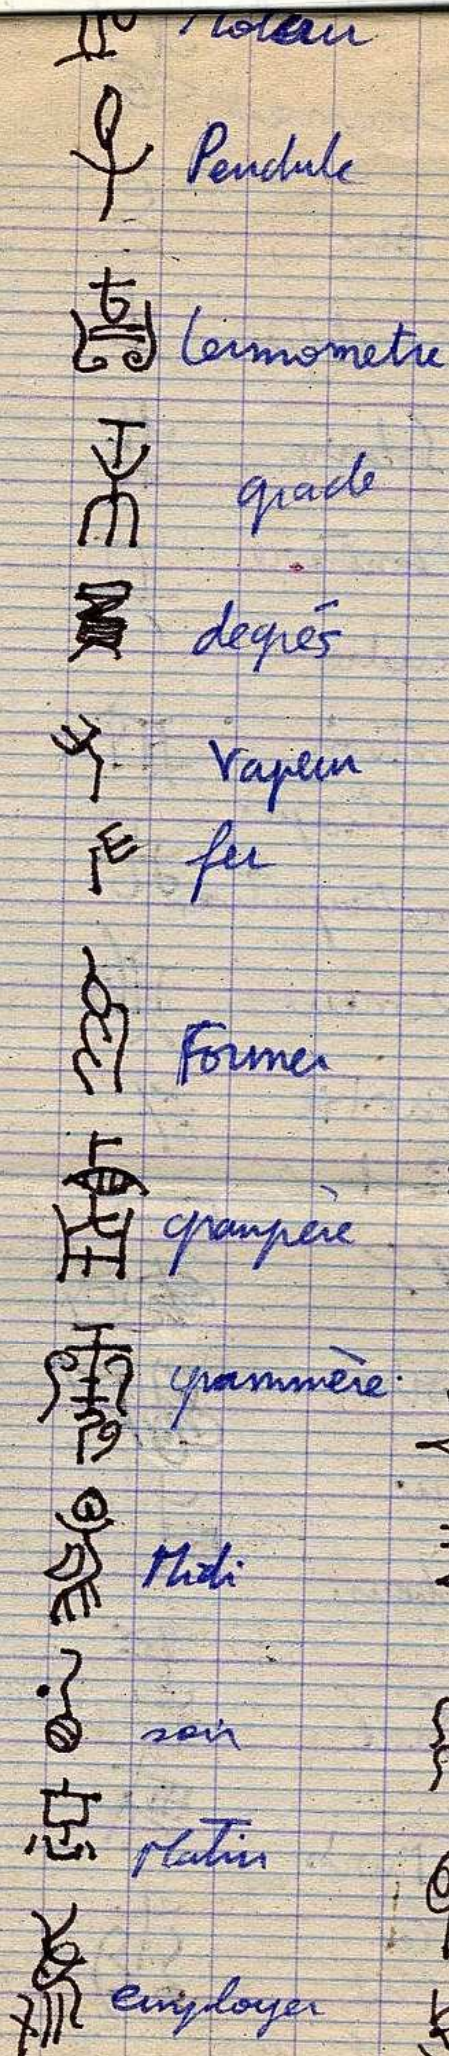 Pendule
termometre
grade
degrés
Vapeur
fer
Former
granpère
grammère
Midi
soir
Matin
employer